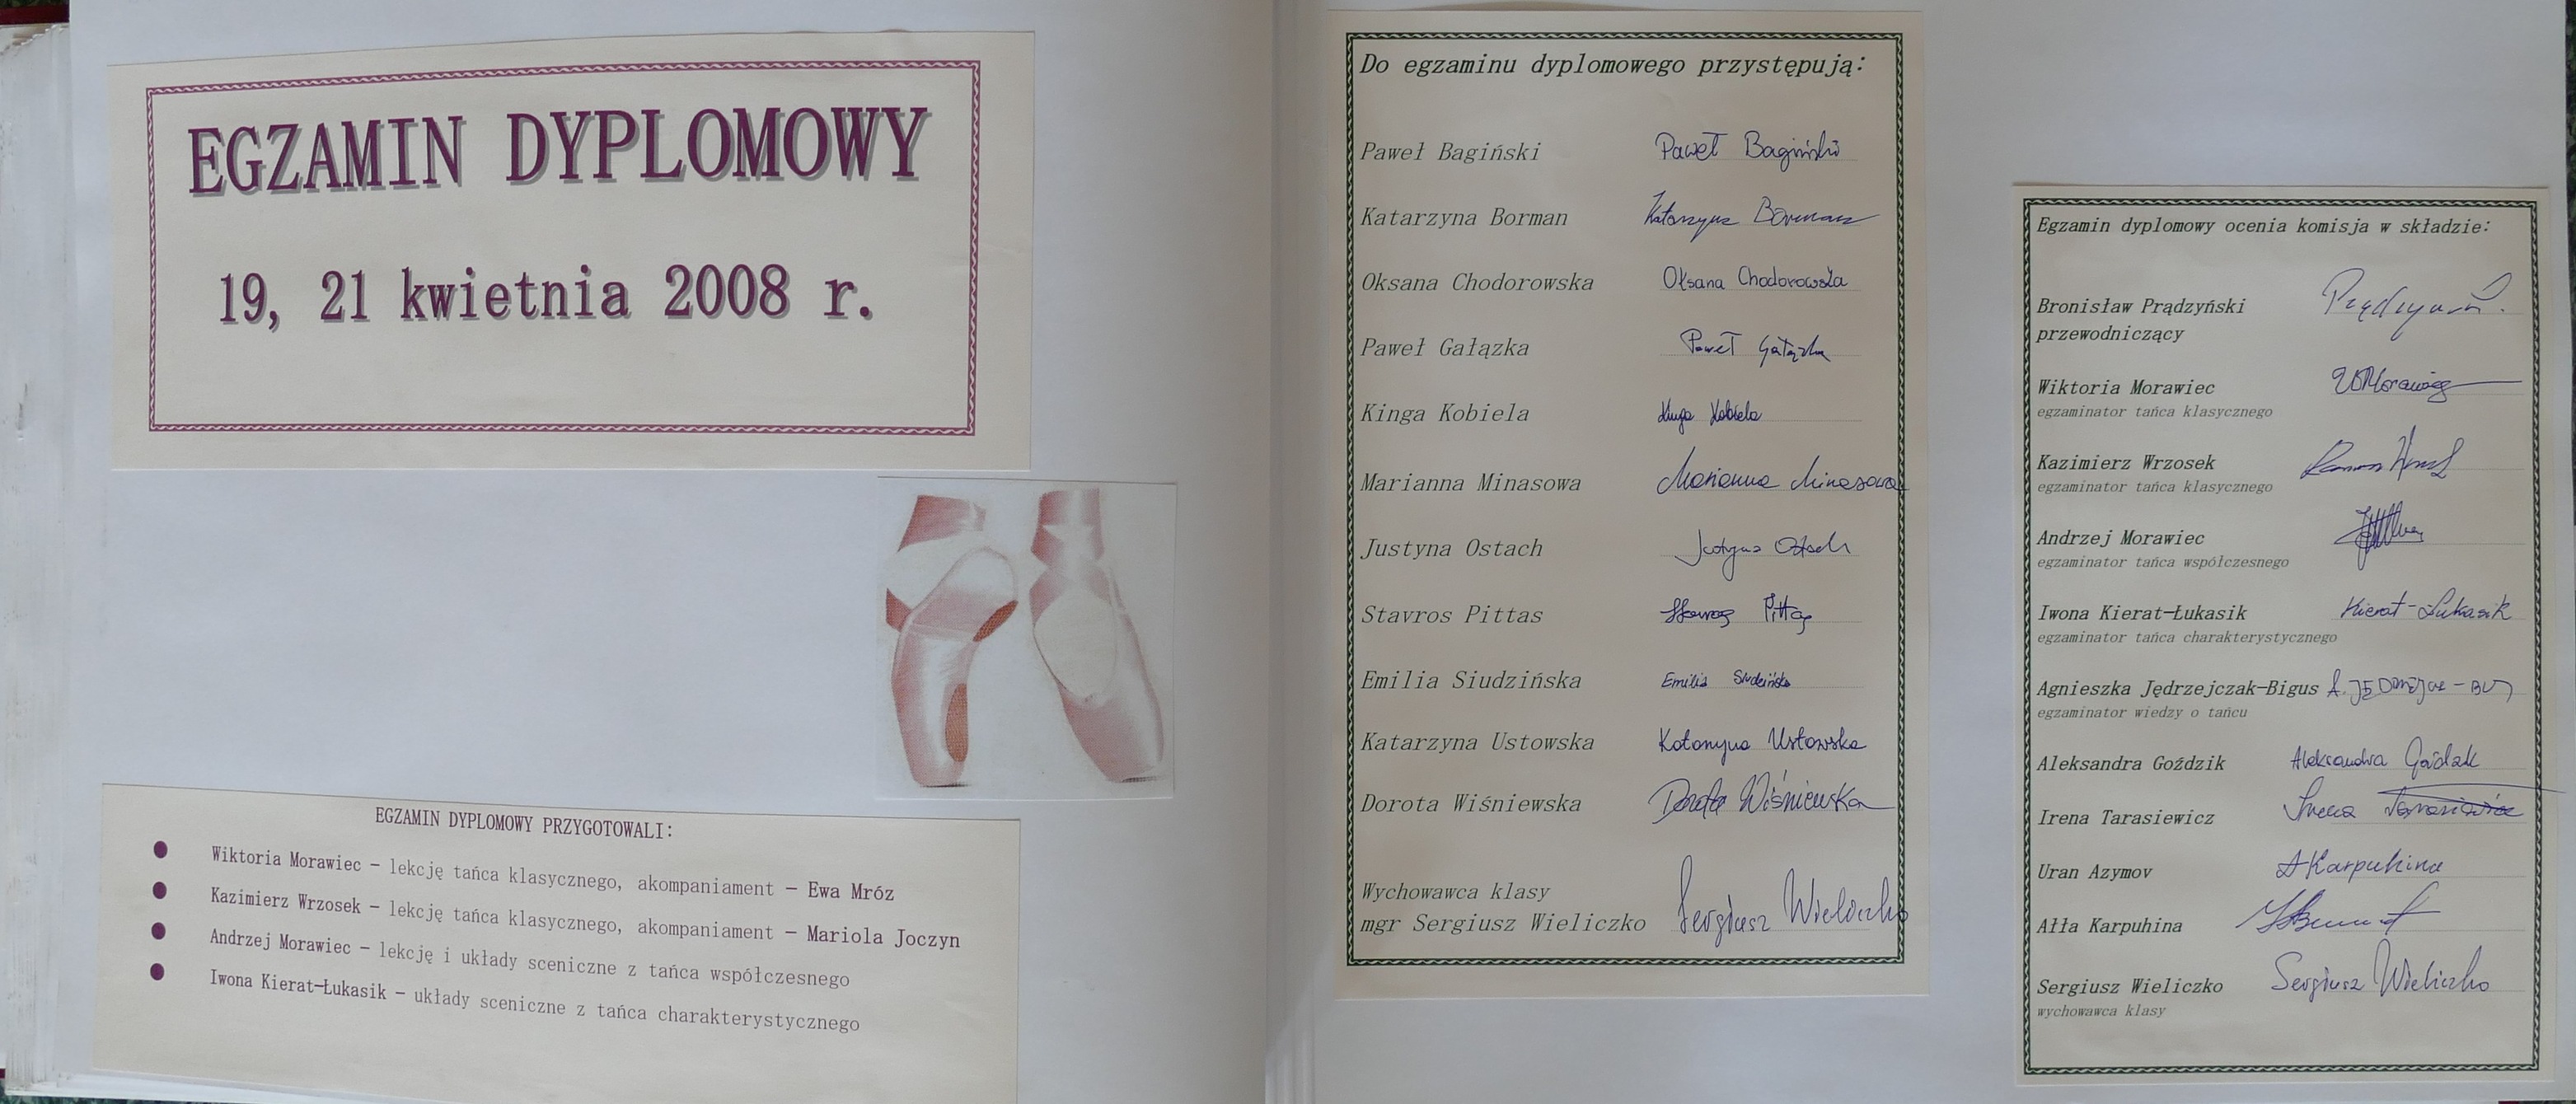 EGZAMIN DYPLOMOWY
19, 21 kwietnia 2008 r.
EGZAMIN DYPLOMOWY PRZYGOTOWALI:
● Wiktoria Morawiec – lekcję tańca klasycznego, akompaniament – Ewa Mróz
● Kazimierz Wrzosek – lekcję tańca klasycznego, akompaniament – Mariola Joczyn
● Andrzej Morawiec – lekcję i układy sceniczne z tańca współczesnego
● Iwona Kierat-Łukasik – układy sceniczne z tańca charakterystycznego
Do egzaminu dyplomowego przystępują:
Paweł Bagiński Paweł Bagiński
Katarzyna Borman Katarzyna Borman
Oksana Chodorowska Oksana Chodorowska
Paweł Gałązka Paweł Gałązka
Kinga Kobiela Kinga Kobiela
Marianna Minasowa Marianna Minasowa
Justyna Ostach Justyna Ostach
Stavros Pittas Stavros Pittas
Emilia Siudzińska Emilia Siudzińska
Katarzyna Ustowska Katarzyna Ustowska
Dorota Wiśniewska Dorota Wiśniewska
Wychowawca klasy
mgr Sergiusz Wieliczko Sergiusz Wieliczko
Egzamin dyplomowy ocenia komisja w składzie:
Bronisław Prądzyński
przewodniczący
Wiktoria Morawiec WMorawiec
egzaminator tańca klasycznego
Kazimierz Wrzosek
egzaminator tańca klasycznego
Andrzej Morawiec
egzaminator tańca współczesnego
Iwona Kierat-Łukasik Kierat-Łukasik
egzaminator tańca charakterystycznego
Agnieszka Jędrzejczak-Bigus
egzaminator wiedzy o tańcu
Aleksandra Goździk Aleksandra Goździk
Irena Tarasiewicz Irena Tarasiewicz
Uran Azymov AKarpuhina
Ałła Karpuhina
Sergiusz Wieliczko Sergiusz Wieliczko
wychowawca klasy